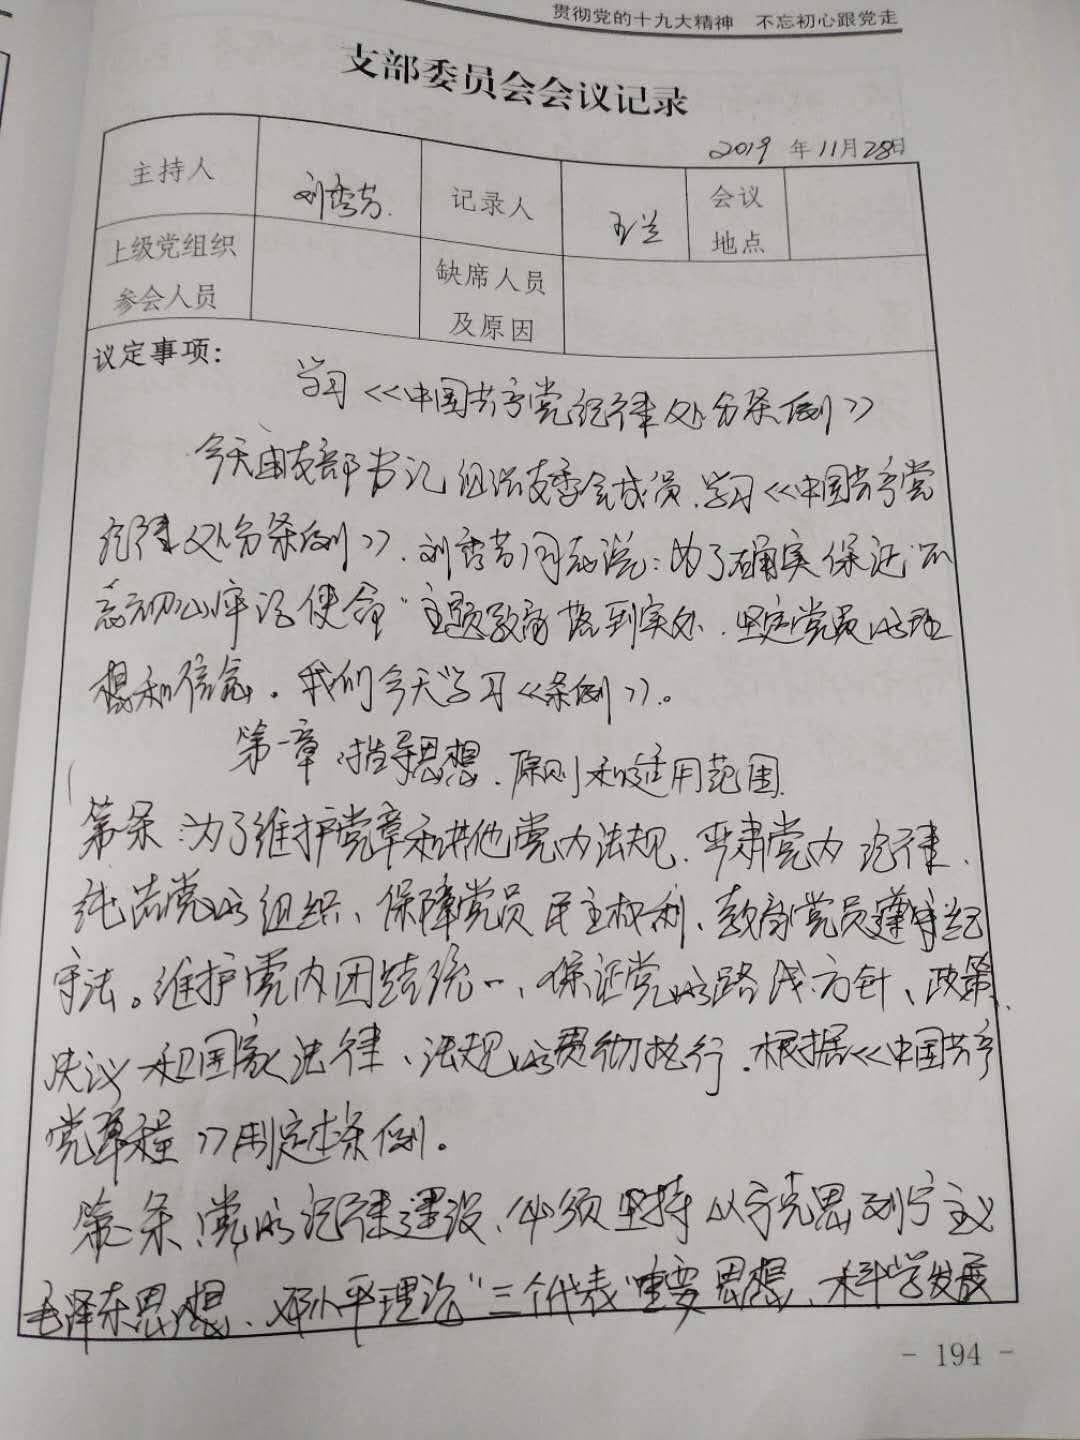 贯彻党的十九大精神 不忘初心跟党走
支部委员会会议记录
2019 年 11月 28日
主持人 刘秀芳 记录人 王兰 会议地点
上级党组织参会人员 缺席人员及原因
议定事项：
学习《中国共产党纪律处分条例》
今天由支部书记组织支委会成员,学习《中国共产党
纪律处分条例》.刘秀芳同志说：为了确实保证“不
忘初心牢记使命”主题教育落到实处.坚定党员的理
想和信念.我们今天学习《条例》。
第一章:指导思想、原则和适用范围
第一条:为了维护党章和其他党内法规、严肃党内纪律、
纯洁党的组织、保障党员民主权利、教育党员遵守纪
守法。维护党内团结统一、保证党的路线、方针、政策、
决议和国家法律、法规的贯彻执行.根据《中国共产
党章程》制定本条例。
第二条:党的纪律建设、必须坚持以马克思列宁主义
毛泽东思想、邓小平理论“三个代表”重要思想、科学发展
- 194 -